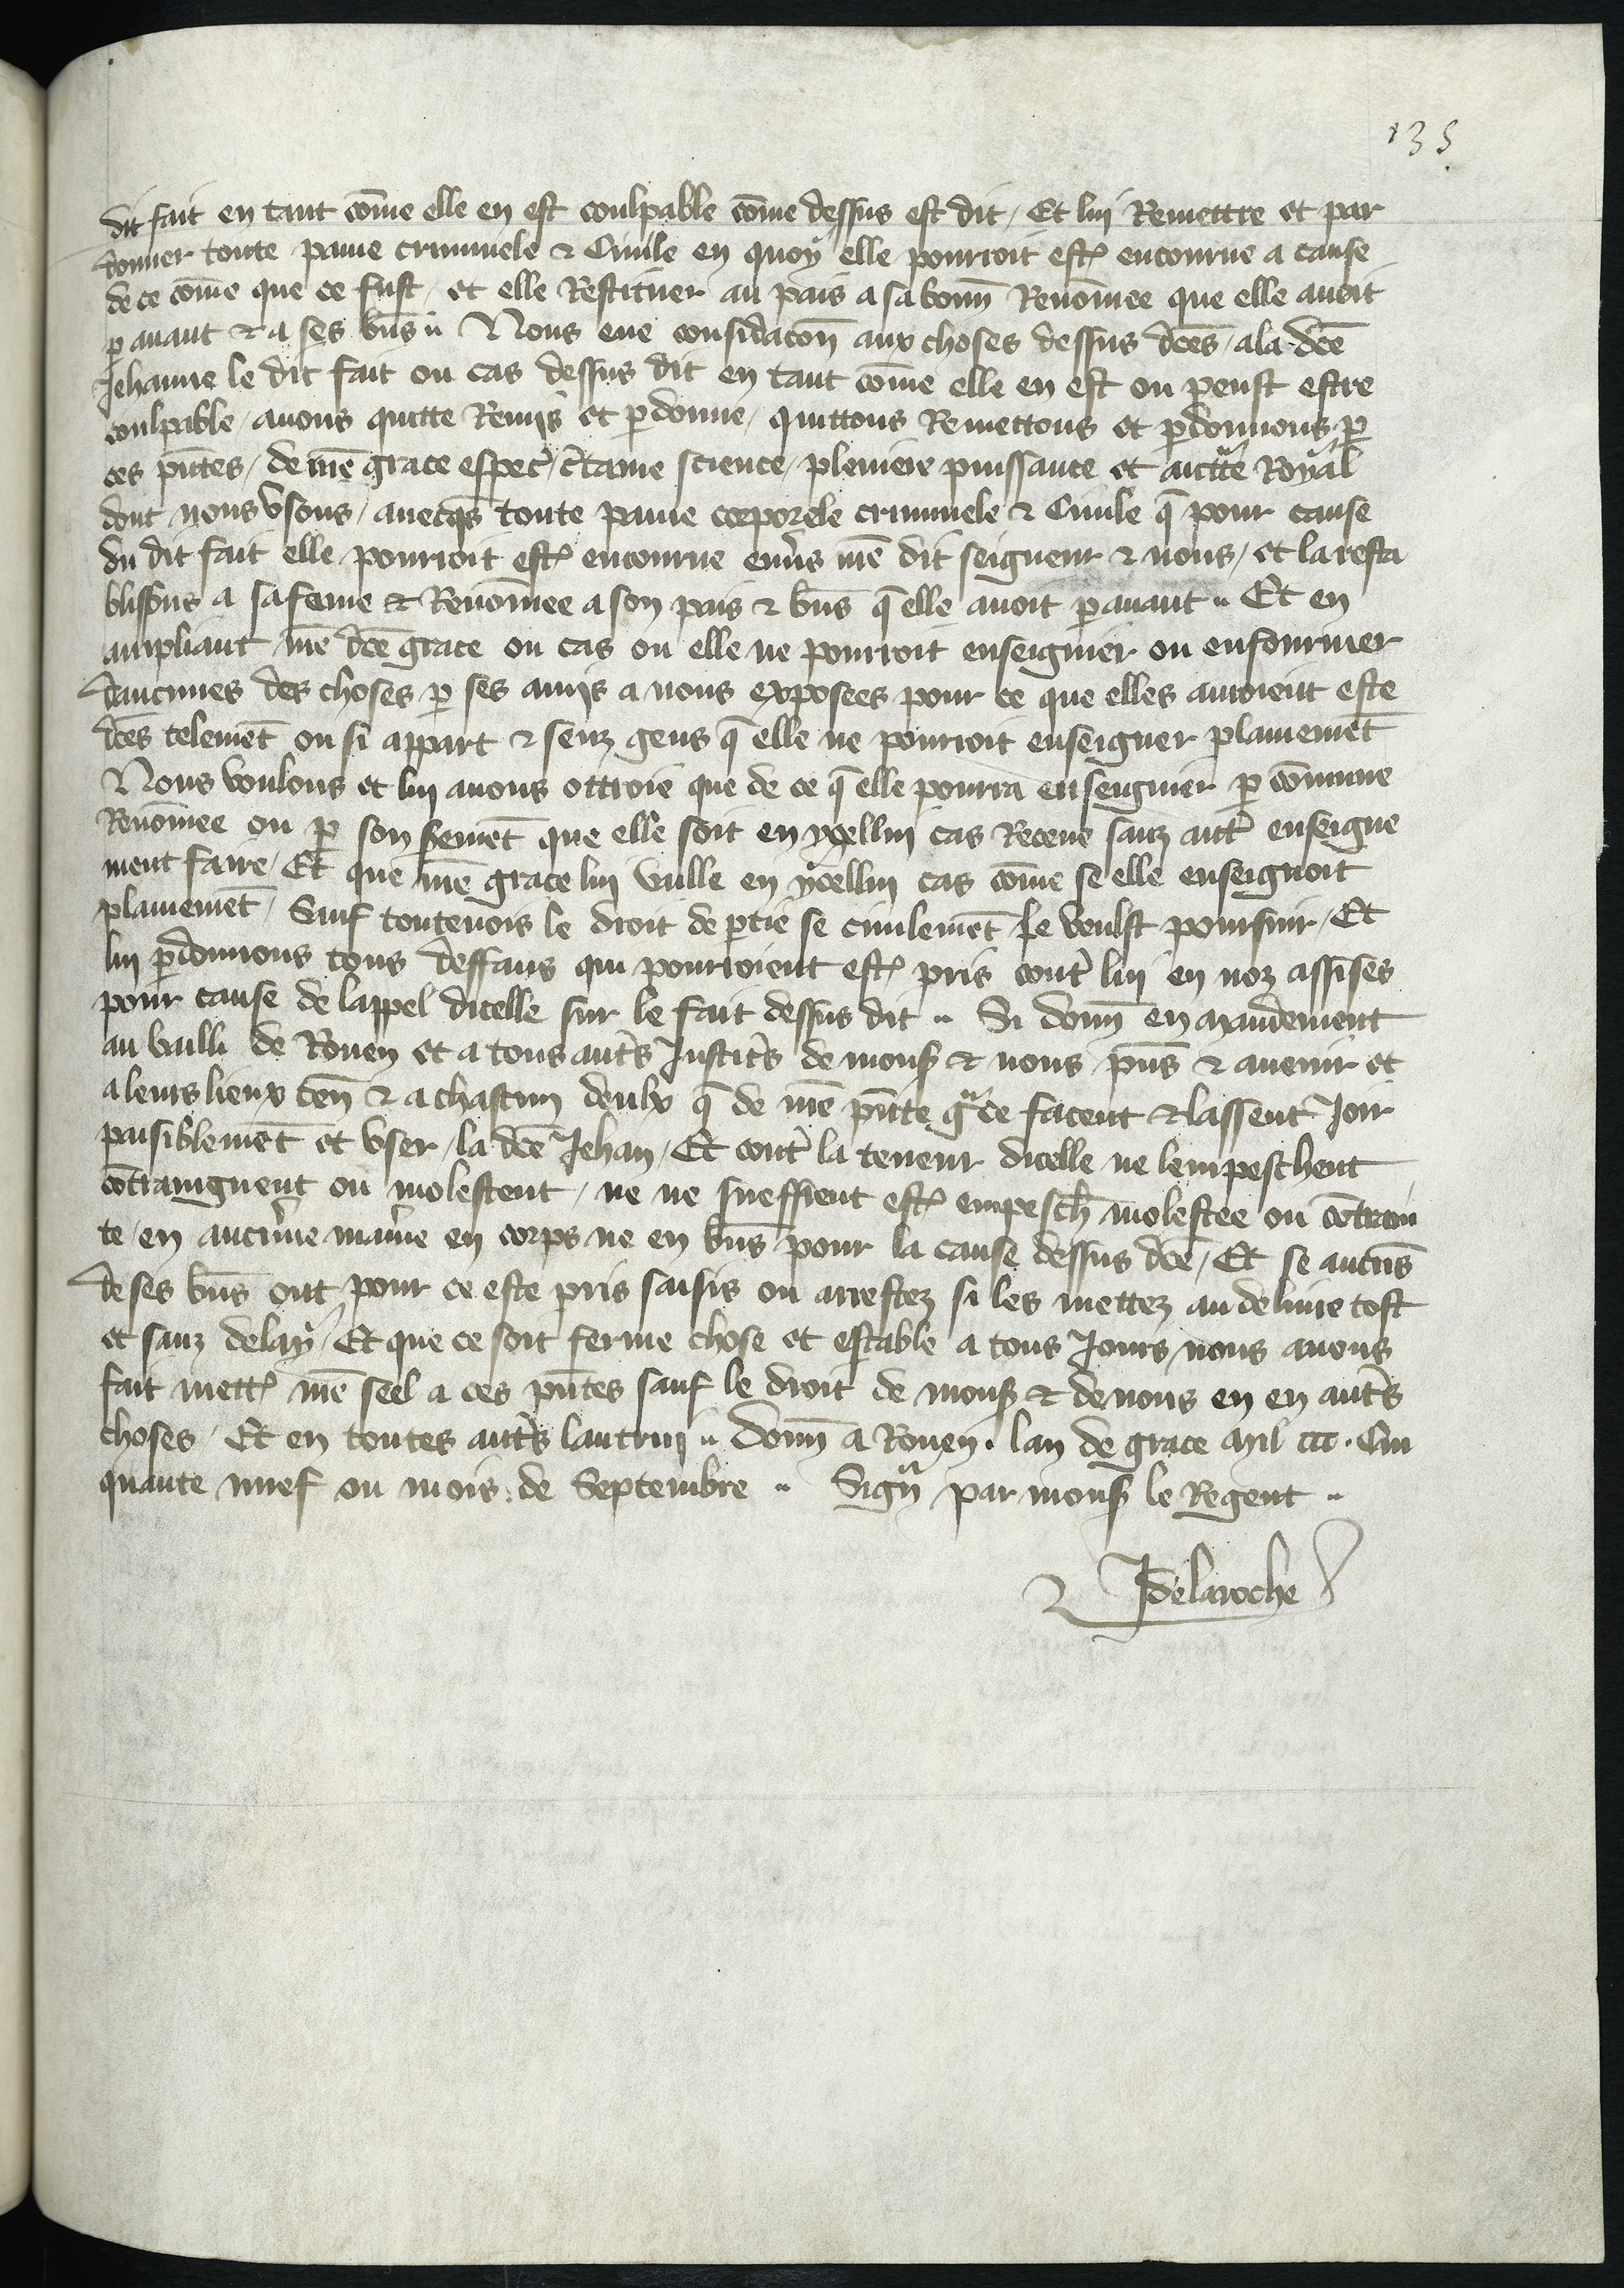 135
dit fait en tant cōme elle en est coulpable cōme dessus est dit / Et lui Remettre et par
donner toute paine criminele & Ciuile en quoy elle pourroit estr̄ encourue a cause
de ce cōme que ce fust / et elle Restituer au pais a sa bonn̄ Renōmee que elle auoit
ꝑ auant & a ses bn̄s ·· Nous eue considacōn aux choses dessus dc̄es / a la dc̄e
Jehanne le dit fait ou cas dessus dit en tant cōme elle en est ou peust estre
coulpable / auons quitte Remis et ꝑdonne / quittons Remettons et ꝑdonnons ꝑ
ces pn̄tes / de nr̄e grace especˀ / cˀtaine science / pleniere puissance et auctˀte Royal
dont nous vsons / auecqs̄ toute paine corporele criminele & Ciuile q̄ pour cause
du dit fait elle pourroit estr̄ encourue enuˀs nr̄e dit seigneur & nous / et la resta
blissons a sa feme & Renōmee a son pais & bn̄s q̄ elle auoit ꝑauant ·· Et en
ampliant nr̄e dc̄e grace ou cas ou elle ne pourroit enseignier ou enfourmer
daucunes des choses ꝑ ses amis a nous exposees pour ce que elles auroient este
dc̄es telemēt ou si appart & senz gens q̄ elle ne pourroit enseigner plainemēt
Nous voulons et lui auons ottroie que de ce q̄ elle pourra enseignier ꝑ cōmune
Renōmee ou ꝑ son sˀemēt que elle soit en ycellui cas Receue sanz autˀ enseigne
ment faire / Et que nr̄e grace lui vaille en ycellui cas cōme se elle enseignoit
plainemēt / Sauf toutenois le droit de ꝑtie se ciuilemēt le veulst poursuir / Et
lui ꝑdonnons tous deffaus qui pourroient estr̄ pris contˀ lui en noz assises
pour cause de lappel dicelle sur le fait dessus dit ·· Si donn̄ en mandement
au bailli de Rouen et a tous autˀs Justicˀs de monsˀ & nous pn̄s & auenir et
a leurs lieux ten̄ & a chascun deulx q̄ de nr̄e pn̄te gˀce facent & lassent Joir
paisiblemēt et vser / la dc̄e Jehan / Et contˀ la teneur dicelle ne lempeschent
cōtraingnent ou molestent / ne ne sueffrent estr̄ empesch̄ molestee ou cōtrain
te / en aucune manˀe en corps ne en bn̄s pour la cause dessus dc̄e / Et se aucūs
de ses bn̄s ont pour ce este pris saisis ou arrestez si les mettez au deliure tost
et sanz delay / Et que ce soit ferme chose et estable a tous Jours / nous auons
fait mettr̄ nr̄e seel a ces pn̄tes sauf le droit de monsˀ & de nous en en autˀs
choses / Et en toutes autˀs lautrui ·· Donn̄ a Rouen · lan de grace Mil CCC · Cin
quante nuef ou mois de Septembre ·· Sign̄ par monsˀ le Regent ··
J Delaroche